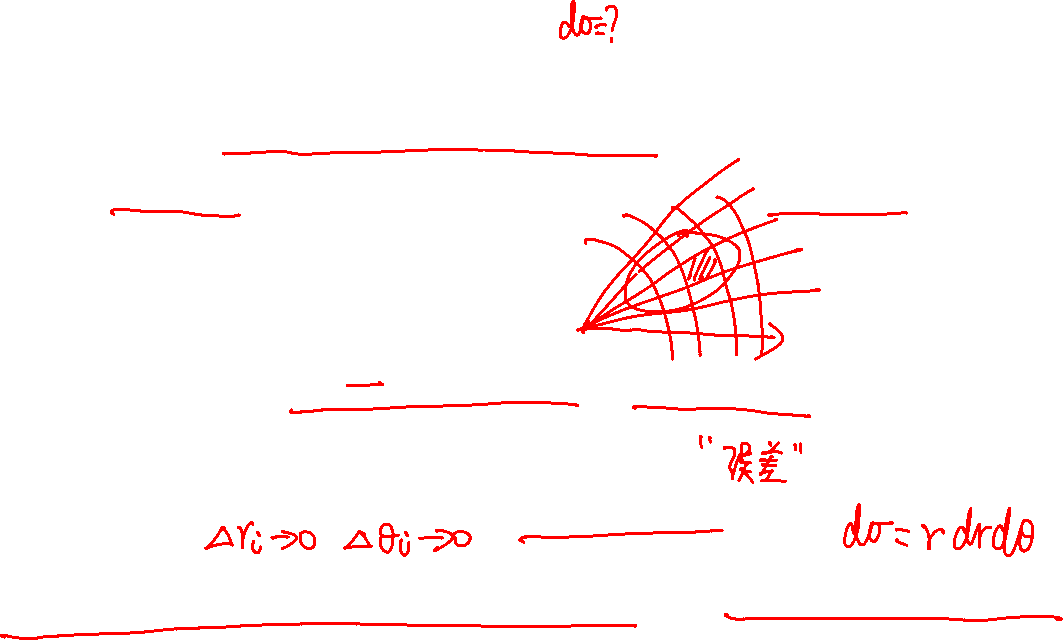 dσ=?
"误差"
Δr_i→0 Δθ_i→0
dσ=r dr dθ